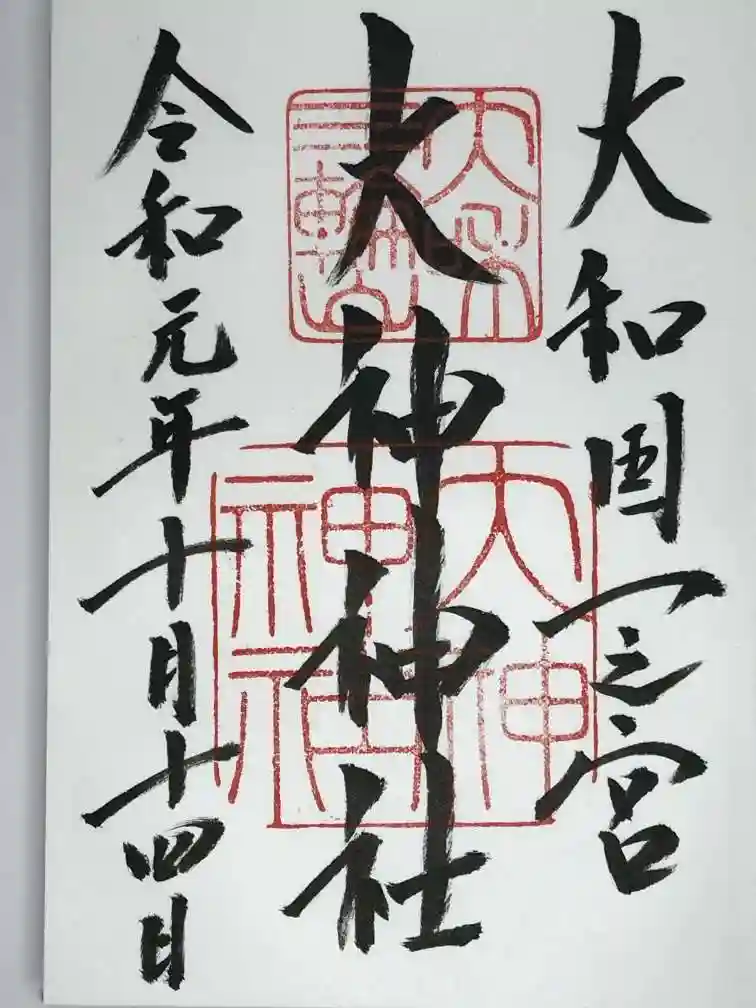 大和国一之宮
大神神社
令和元年十月十四日
大神
神社